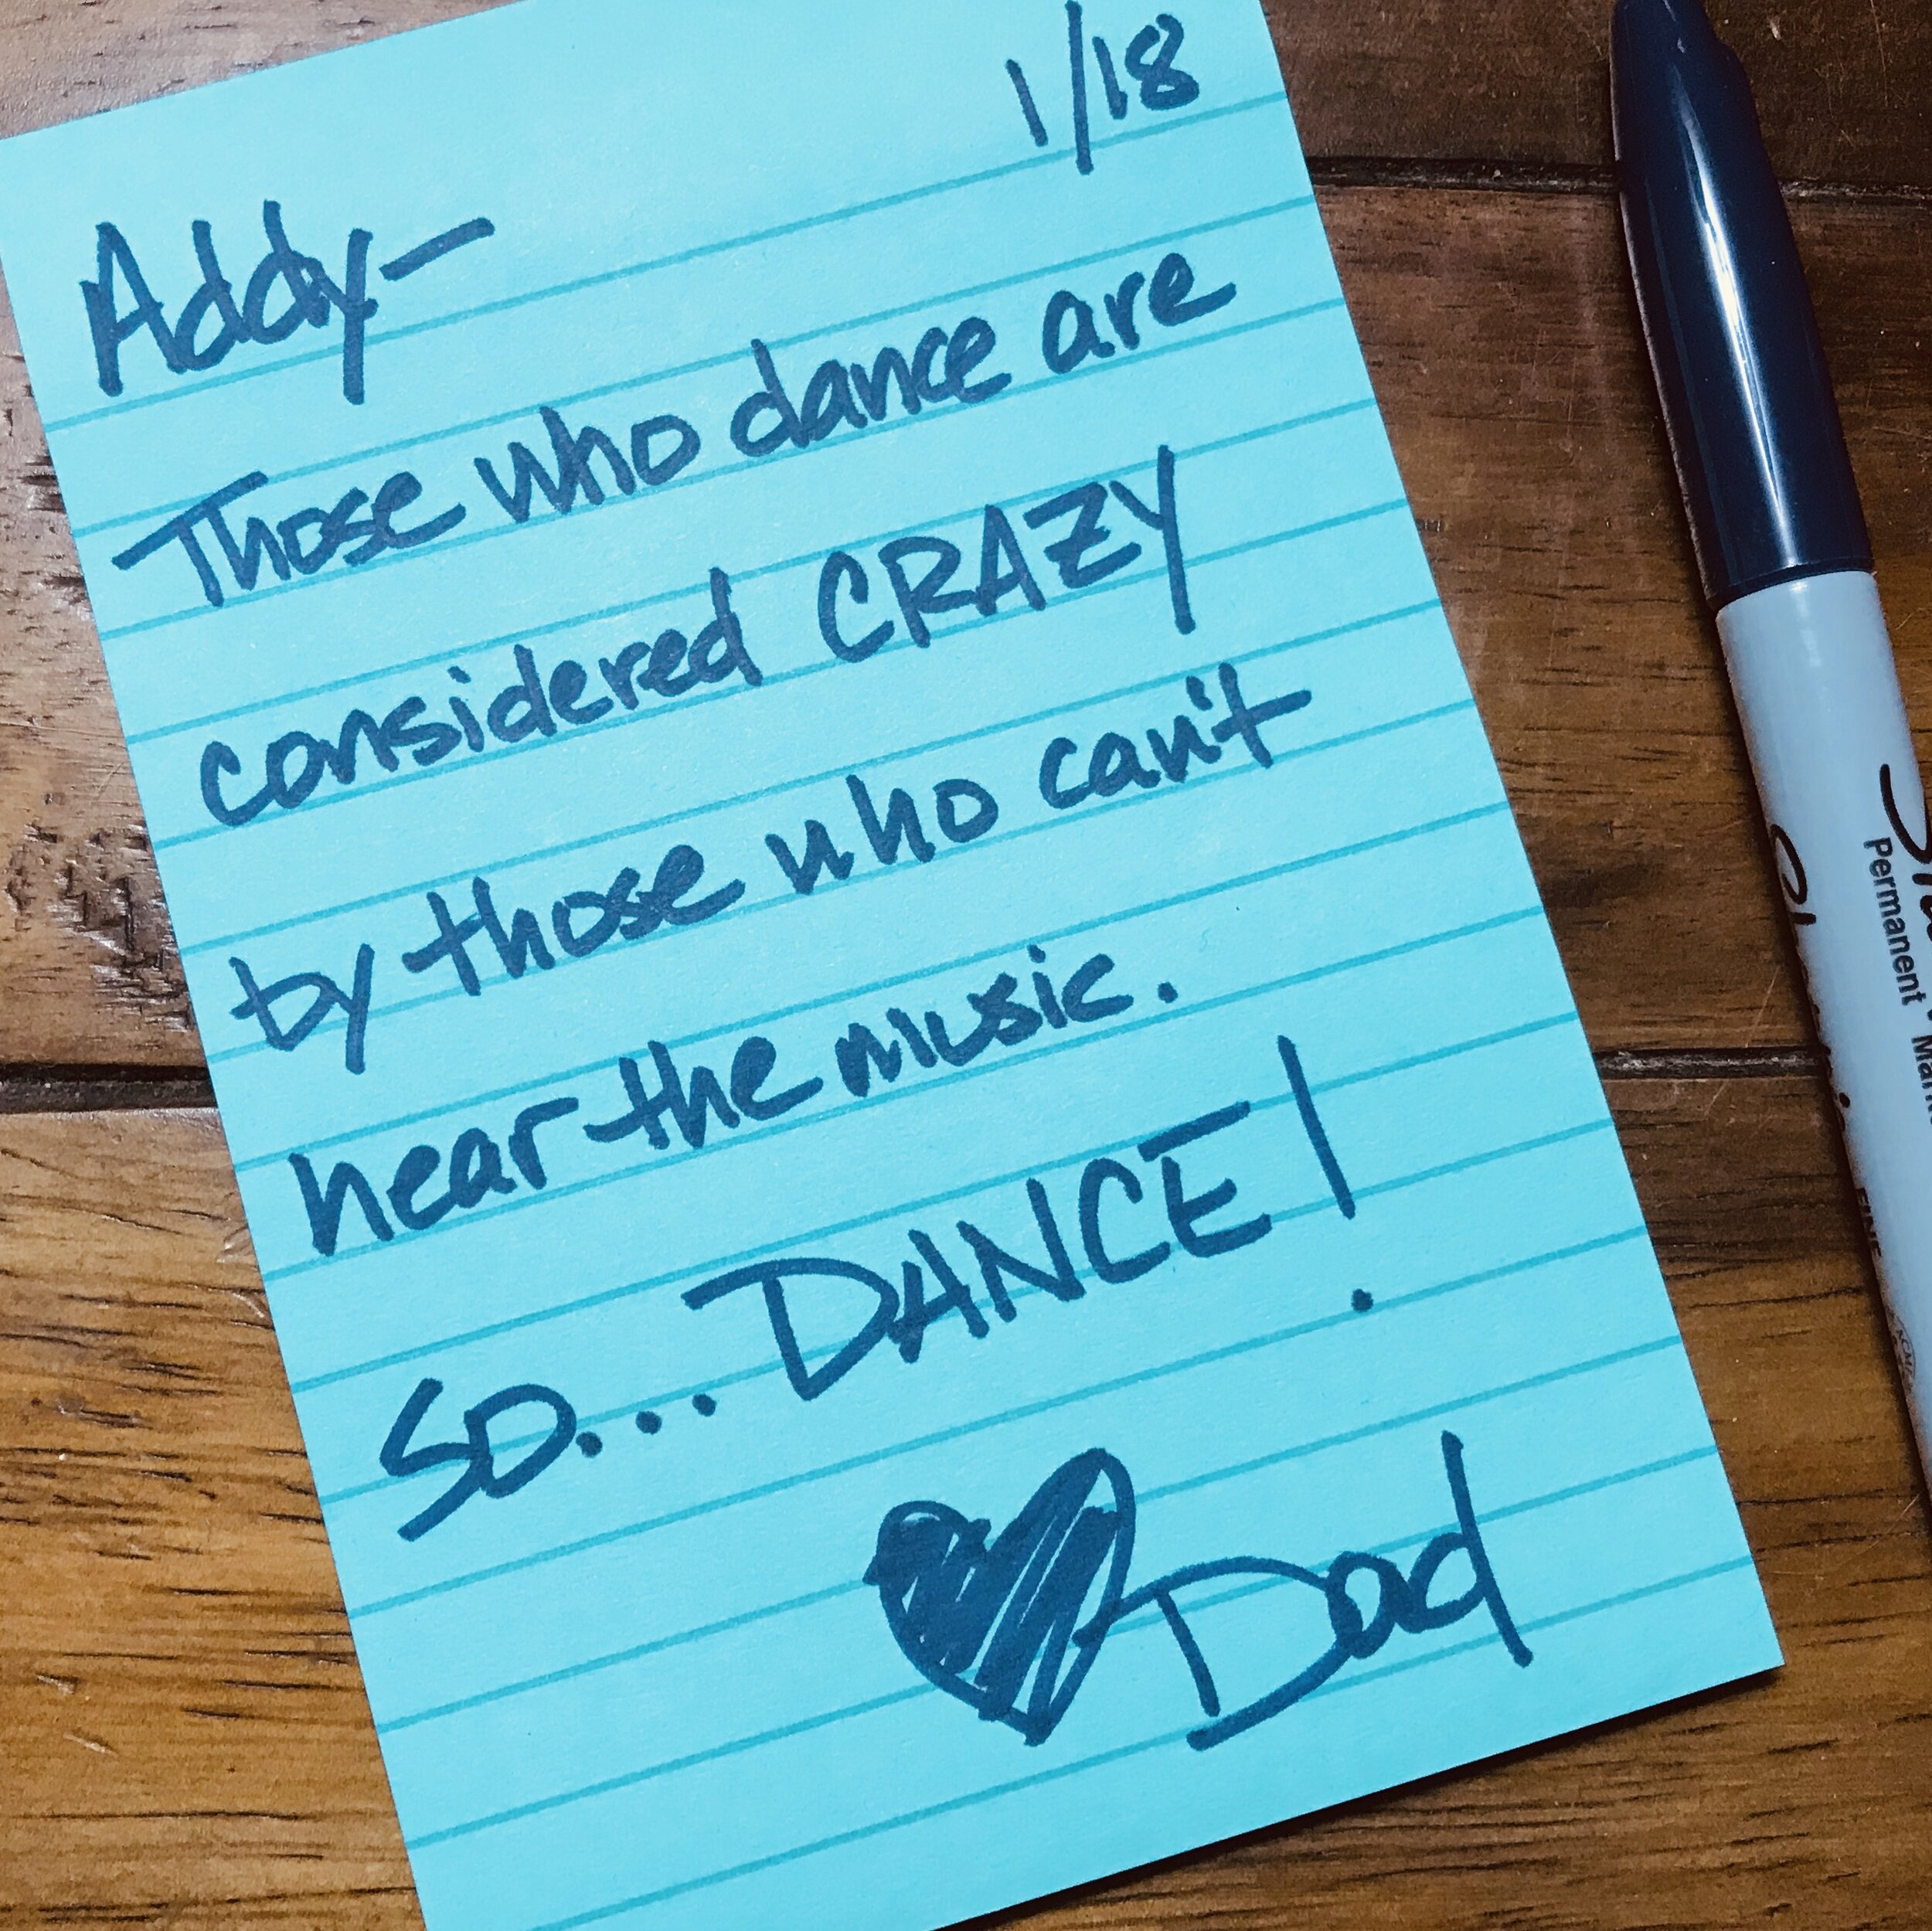 1/18
Addy-
Those who dance are
considered CRAZY
by those who can't
hear the music.
SO...DANCE!
Dad
Permanent